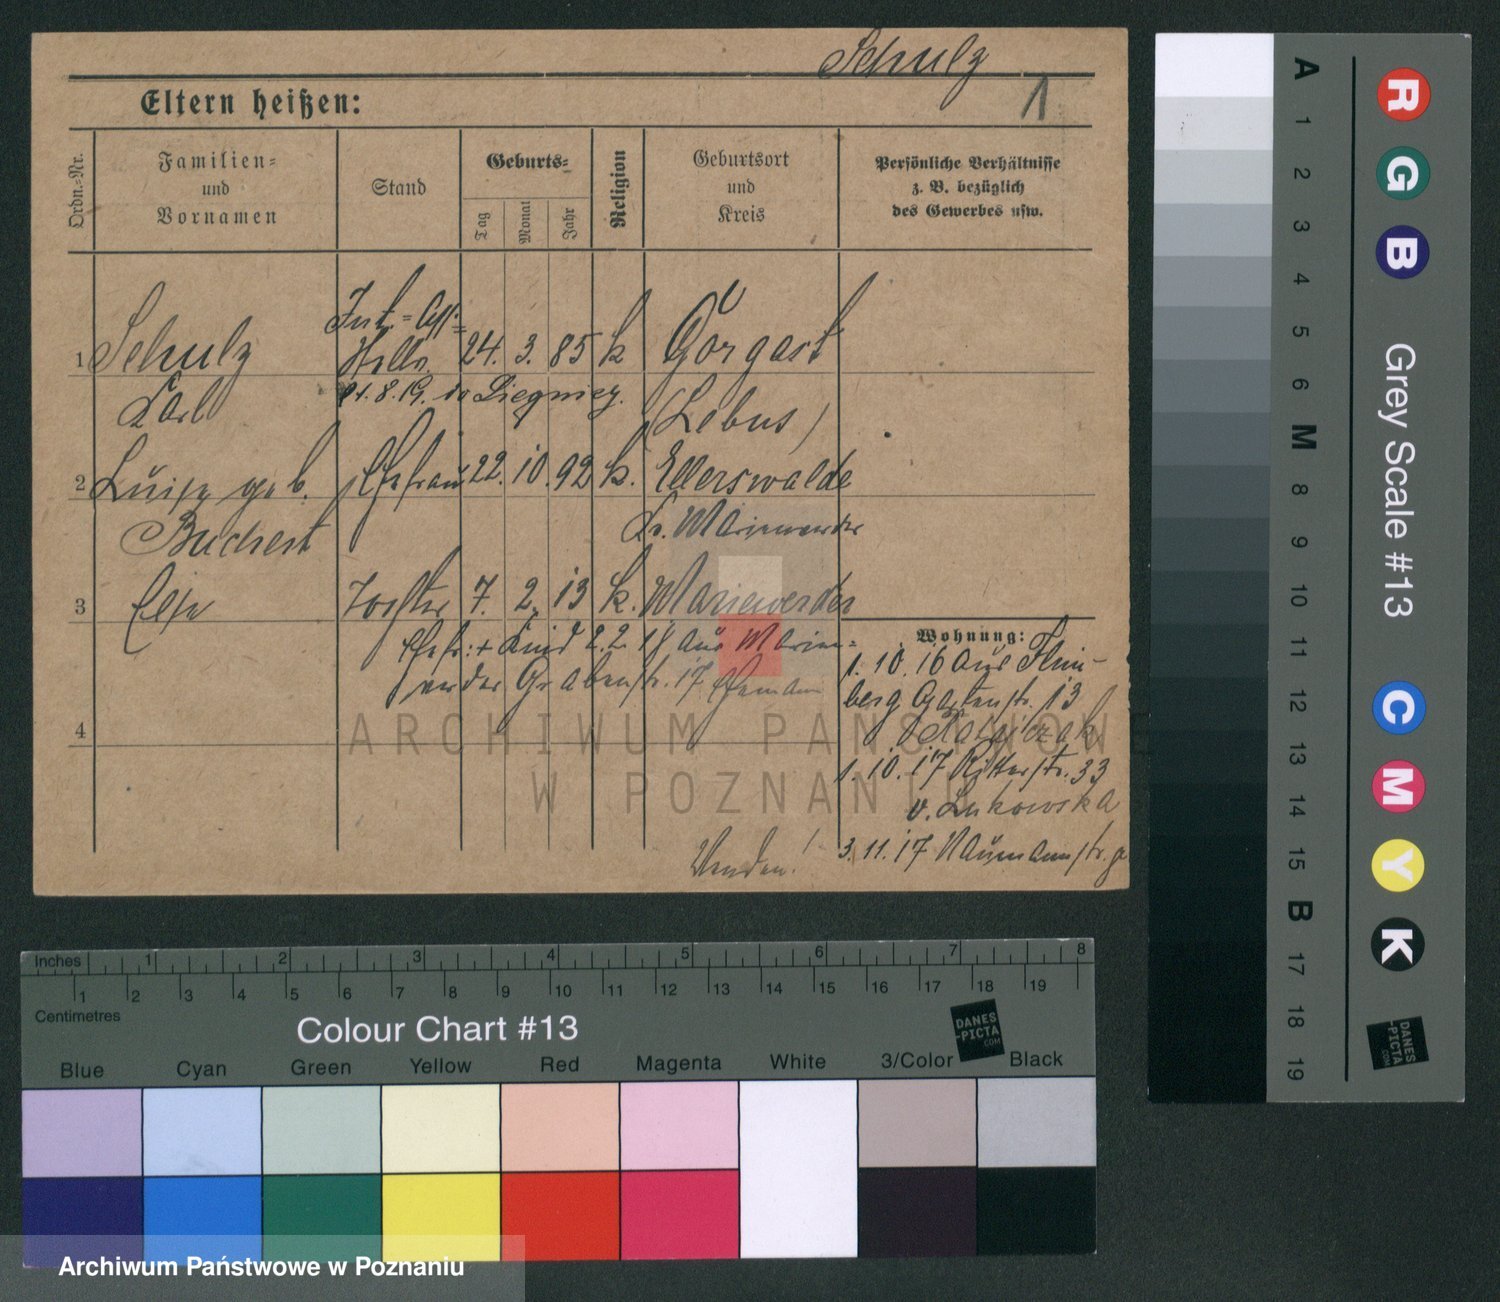 Schulz
1
Eltern heißen:
Ordn.-Nr.
Familien-
und
Vornamen
Stand
Geburts-
Tag
Monat
Jahr
Religion
Geburtsort
und
Kreis
Persönliche Verhältnisse
z. B. bezüglich
des Gewerbes usw.
1 Schulz 24. 3. 85 k Görgast
Karl
1.8.19. in Liegnitz.
(Lebus)
2 Luise geb. Ehefrau 22. 10. 92 k. Ellerswalde
Buchert Kr. Marienwerder
3 Else Tochter 7. 2. 13 k. Marienwerder
Ehefr. + Kind 2.2.18 aus Marien-
werder Grabenstr. 17 Ehemann
4
Wohnung:
1. 10. 16 aus
berg Gartenstr. 13
1. 10. 17 Ritterstr. 33
v. Lukowska
3. 11. 17 Naumannstr. 9
Wenden!
ARCHIWUM PAŃSTWOWE
W POZNANIU
A 1 2 3 4 5 6 M 8 9 10 11 12 13 14 15 B 17 18 19
R G B
Grey Scale #13
C M Y K
DANES
-PICTA
.COM
Inches 1 2 3 4 5 6 7 8
1 2 3 4 5 6 7 8 9 10 11 12 13 14 15 16 17 18 19
Centimetres
Colour Chart #13
DANES
-PICTA
.COM
Blue Cyan Green Yellow Red Magenta White 3/Color Black
Archiwum Państwowe w Poznaniu